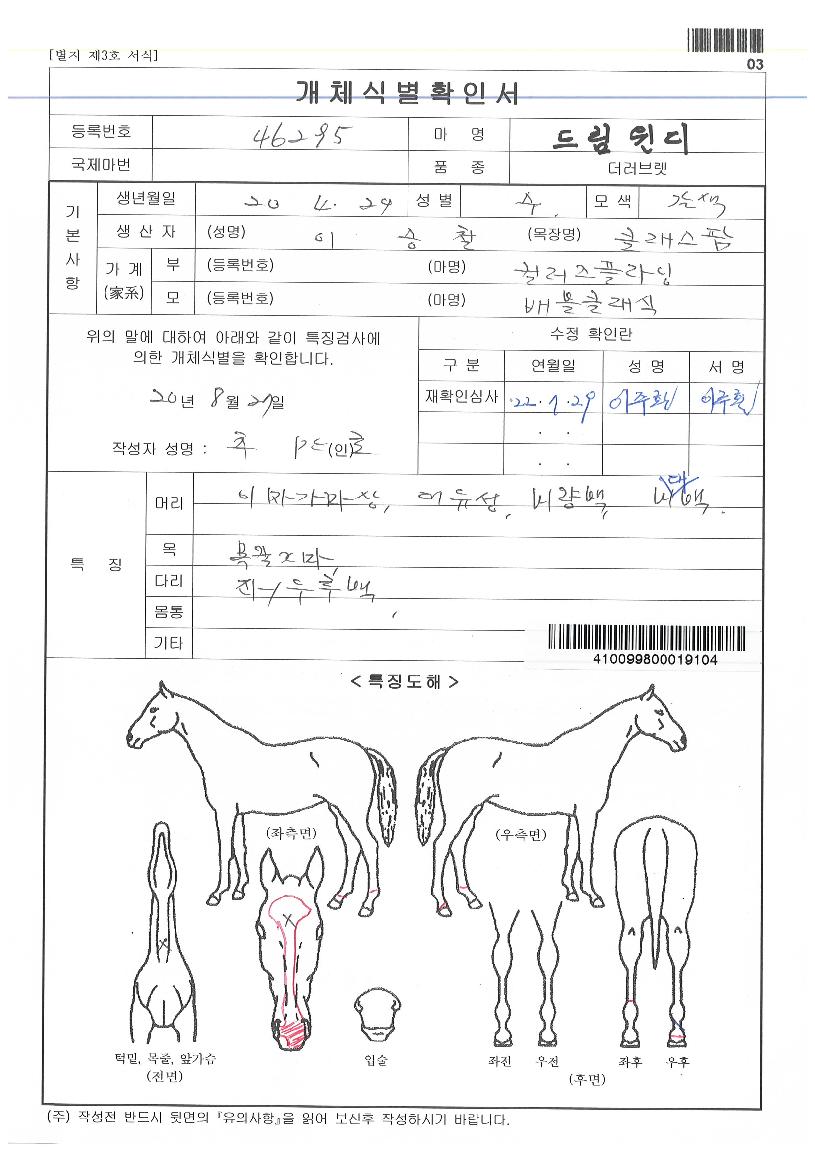 [별지 제3호 서식]
03
개체식별확인서
등록번호 46295 마 명 드림윈디
국제마번 품 종 더러브렛
기본사항
생년월일 20 4. 29 성 별 수 모 색 갈색
생 산 자 (성명) 이 승 찰 (목장명) 클래스팜
가 계 (家系) 부 (등록번호) (마명) 컬러즈플라잉
모 (등록번호) (마명) 배블클래식
위의 말에 대하여 아래와 같이 특징검사에
의한 개체식별을 확인합니다.
20년 8월 27일
작성자 성명 : (인)
수정 확인란
구 분 연월일 성 명 서 명
재확인심사 '22. 1. 29
. .
. .
특 징
머리 이마가마상, 대유성, 비량백, 백.
목 목괄x마,
다리 후백
몸통
기타
410099800019104
< 특징도해 >
(좌측면) (우측면)
턱밑, 목줄, 앞가슴
(전면)
입술
좌전 우전 좌후 우후
(후면)
(주) 작성전 반드시 뒷면의 『유의사항』을 읽어 보신후 작성하시기 바랍니다.